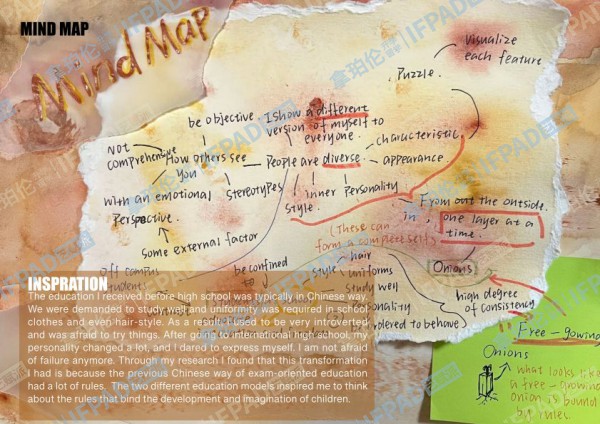 MIND MAP
Mind Map
Visualize
each feature
Puzzle.
be objective
I show a different
version of myself to
everyone.
characteristic
not
comprehensive
How others see
you
People are diverse
appearance.
with an emotional
Perspective.
stereotypes
inner Personality
style.
From out the outside.
in, one layer at a
time.
(these can
form a complete self)
some external factor
Off campus
be confined
to
hair
style
uniforms
study well
Onions
high degree
of consistency
to behave
INSPRATION
The education I received before high school was typically in Chinese way.
We were demanded to study well, and uniformity was required in school
clothes and even hair-style. As a result, I used to be very introverted
and was afraid to try things. After going to international high school, my
personality changed a lot, and I dared to express myself. I am not afraid
of failure anymore. Through my research I found that this transformation
I had is because the previous Chinese way of exam-oriented education
had a lot of rules. The two different education models inspired me to think
about the rules that bind the development and imagination of children.
Free-gowing
Onions
what looks like
a free-growing
onion is bound
by rules
拿珀伦 IFPADE